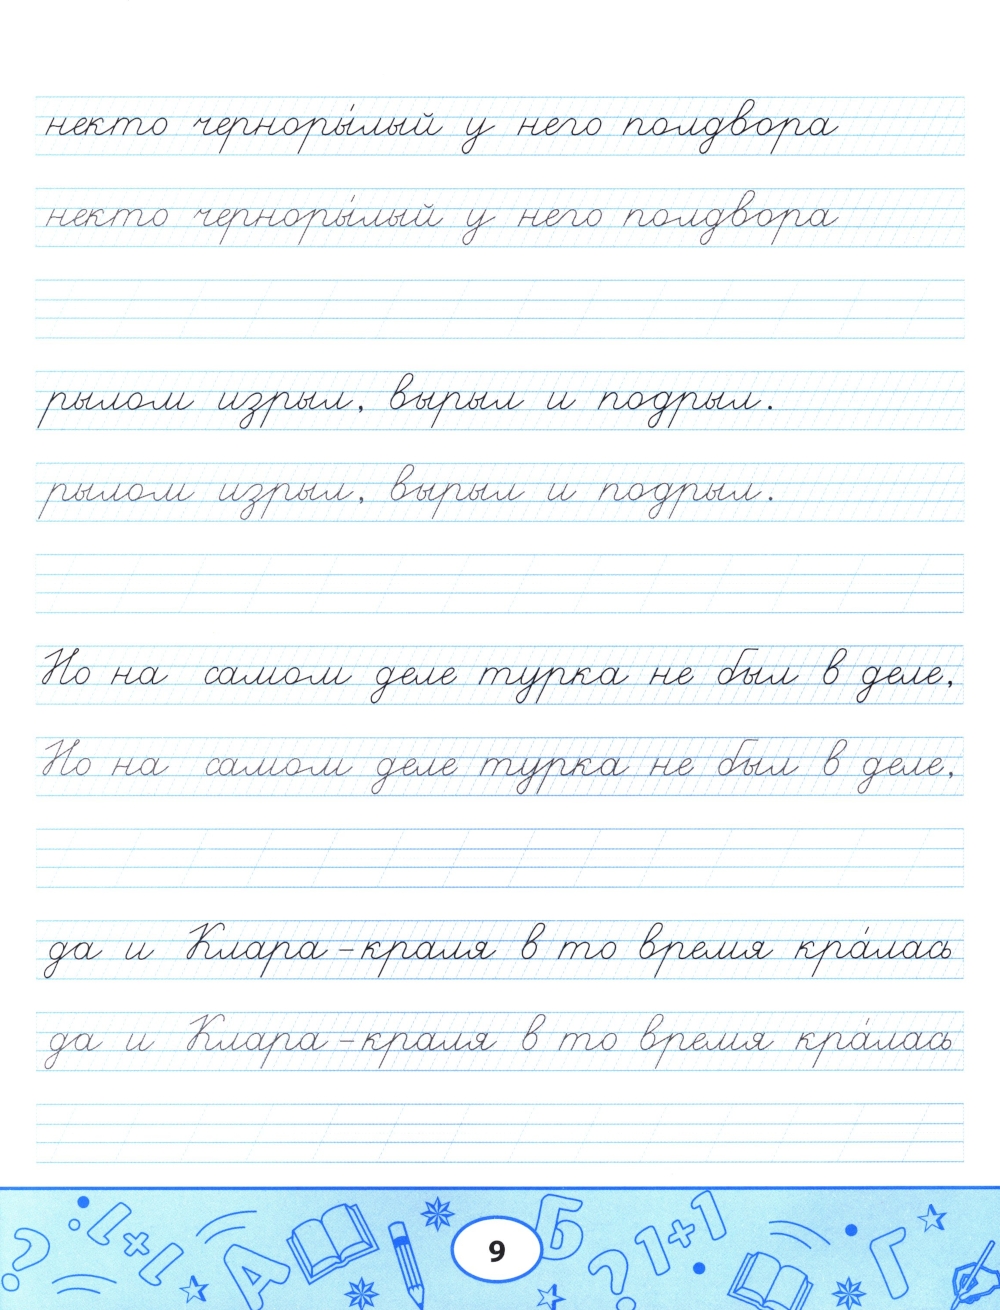 некто черноры́лый у него полдвора
некто черноры́лый у него полдвора
рылом изрыл, вырыл и подрыл.
рылом изрыл, вырыл и подрыл.
Но на самом деле турка не был в деле,
Но на самом деле турка не был в деле,
да и Клара-краля в то время кра́лась
да и Клара-краля в то время кра́лась
? 1+1 А Б ? 1+1 Г
9